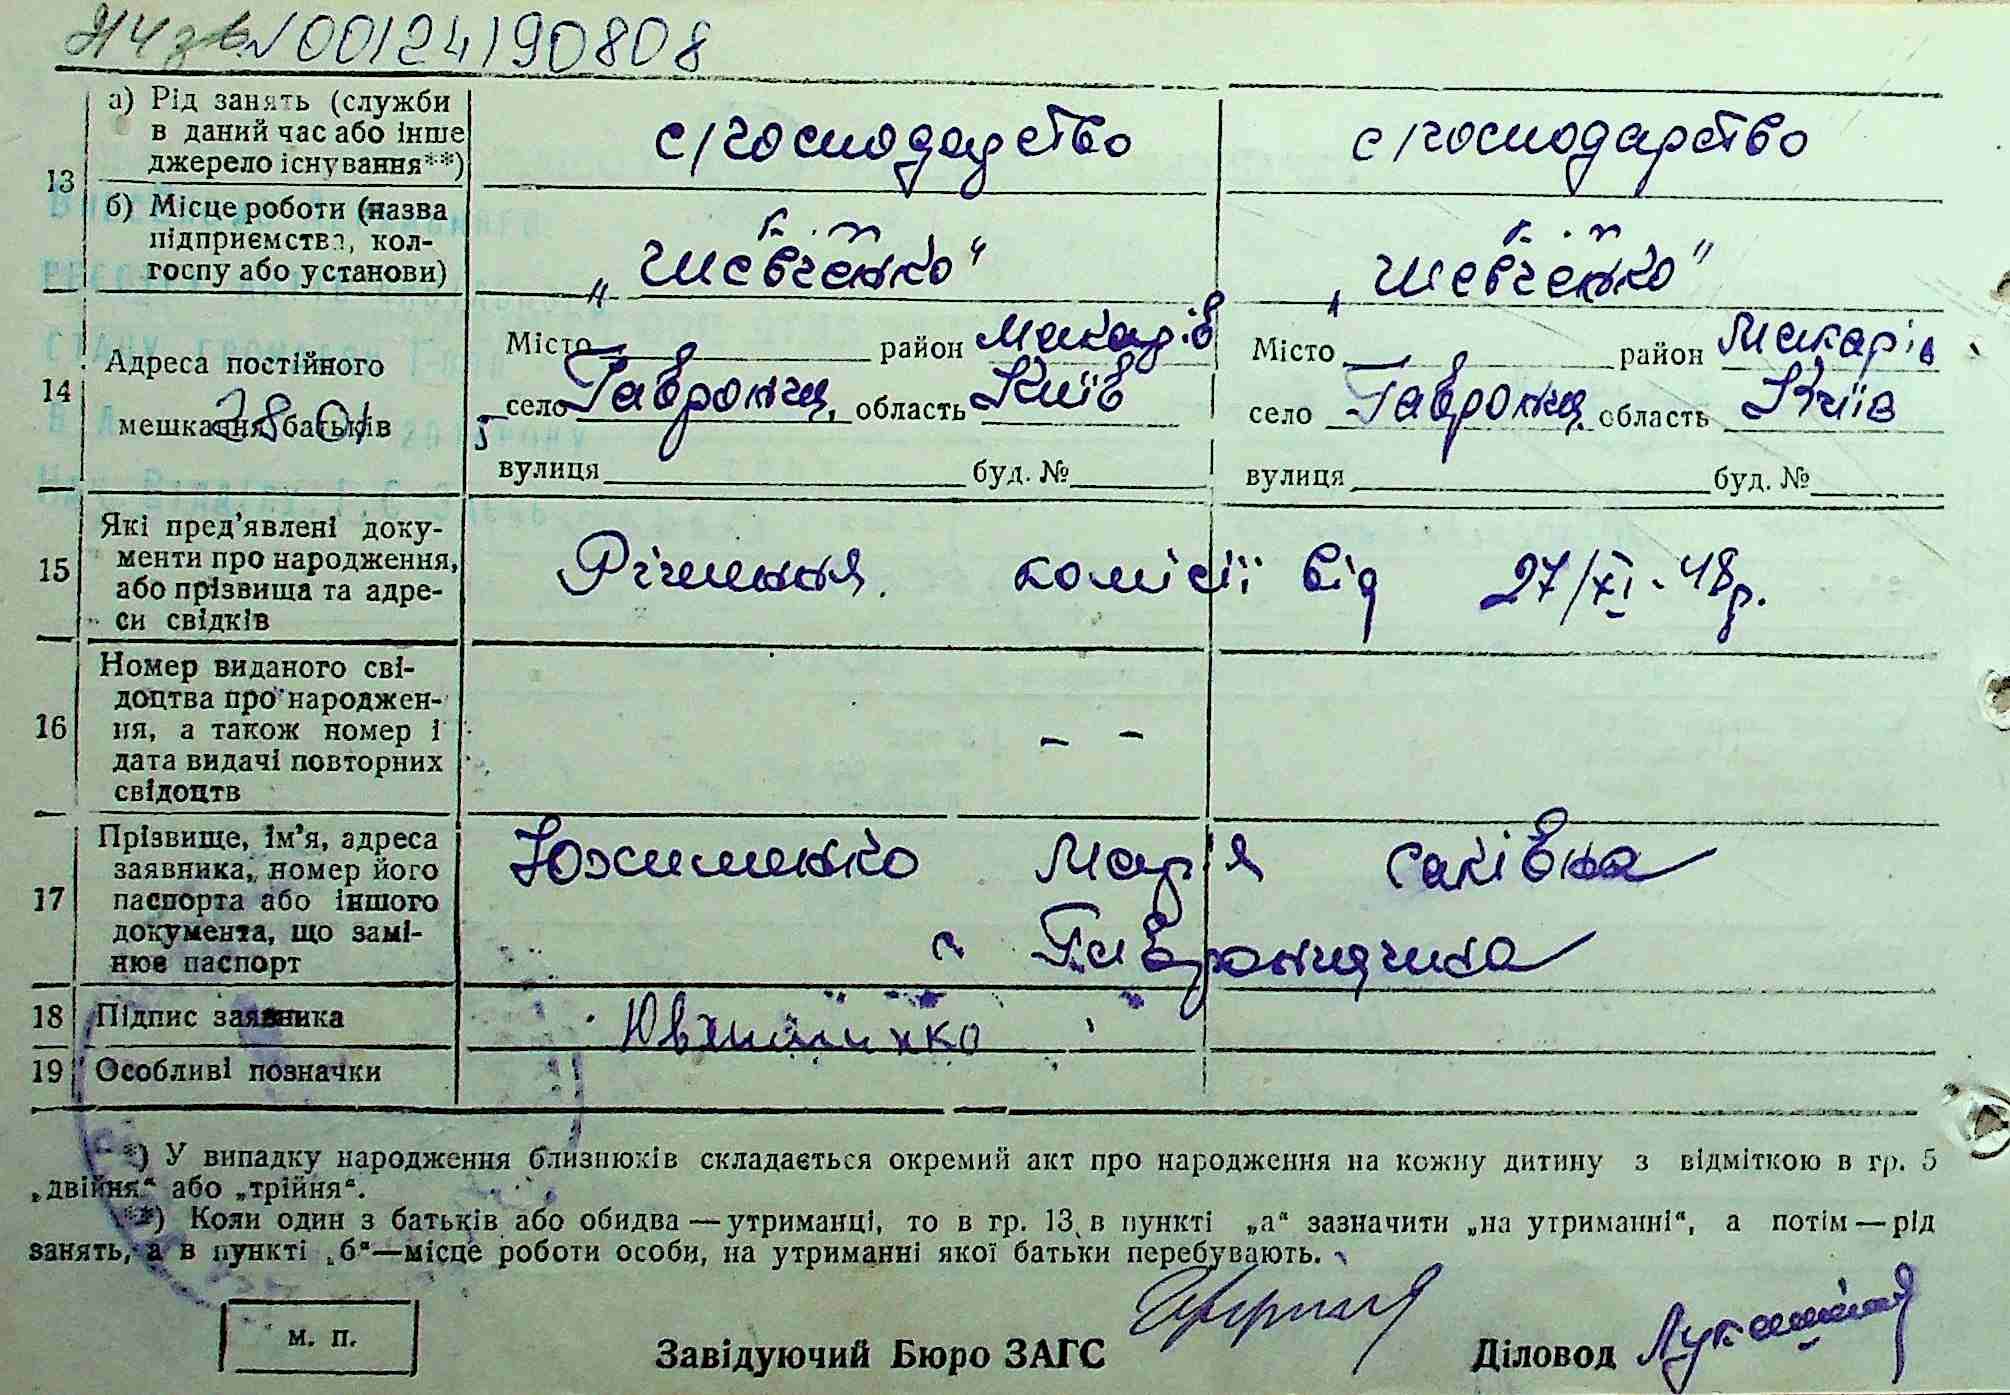 00124190808
13 а) Рід занять (служби в даний час або інше джерело існування**)
с/господарство с/господарство
б) Місце роботи (назва підприємства, колгоспу або установи)
к. ім
„Шевченко" „Шевченко"
14 Адреса постійного мешкання батьків
2801
Місто район Макарів Місто район Макарів
село Гавронщ. область Київ село Гавронщ. область Київ
вулиця буд. № вулиця буд. №
15 Які пред'явлені доку-
менти про народження,
або прізвища та адре-
си свідків
Рішення комісії від 27/XI-48р.
16 Номер виданого сві-
доцтва про народжен-
ня, а також номер і
дата видачі повторних
свідоцтв
- -
17 Прізвище, ім'я, адреса
заявника, номер його
паспорта або іншого
документа, що замі-
нює паспорт
Юхименко Марія Саківна
с Гавронщина
18 Підпис заявника
19 Особливі позначки
*) У випадку народження близнюків складається окремий акт про народження на кожну дитину з відміткою в гр. 5
„двійня“ або „трійня“.
**) Коли один з батьків або обидва — утриманці, то в гр. 13 в пункті „а“ зазначити „на утриманні“, а потім — рід
занять, а в пункті „б“—місце роботи особи, на утриманні якої батьки перебувають.
м. п.
Завідуючий Бюро ЗАГС Діловод